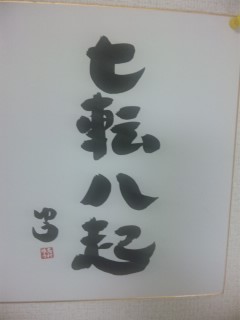 七転八起